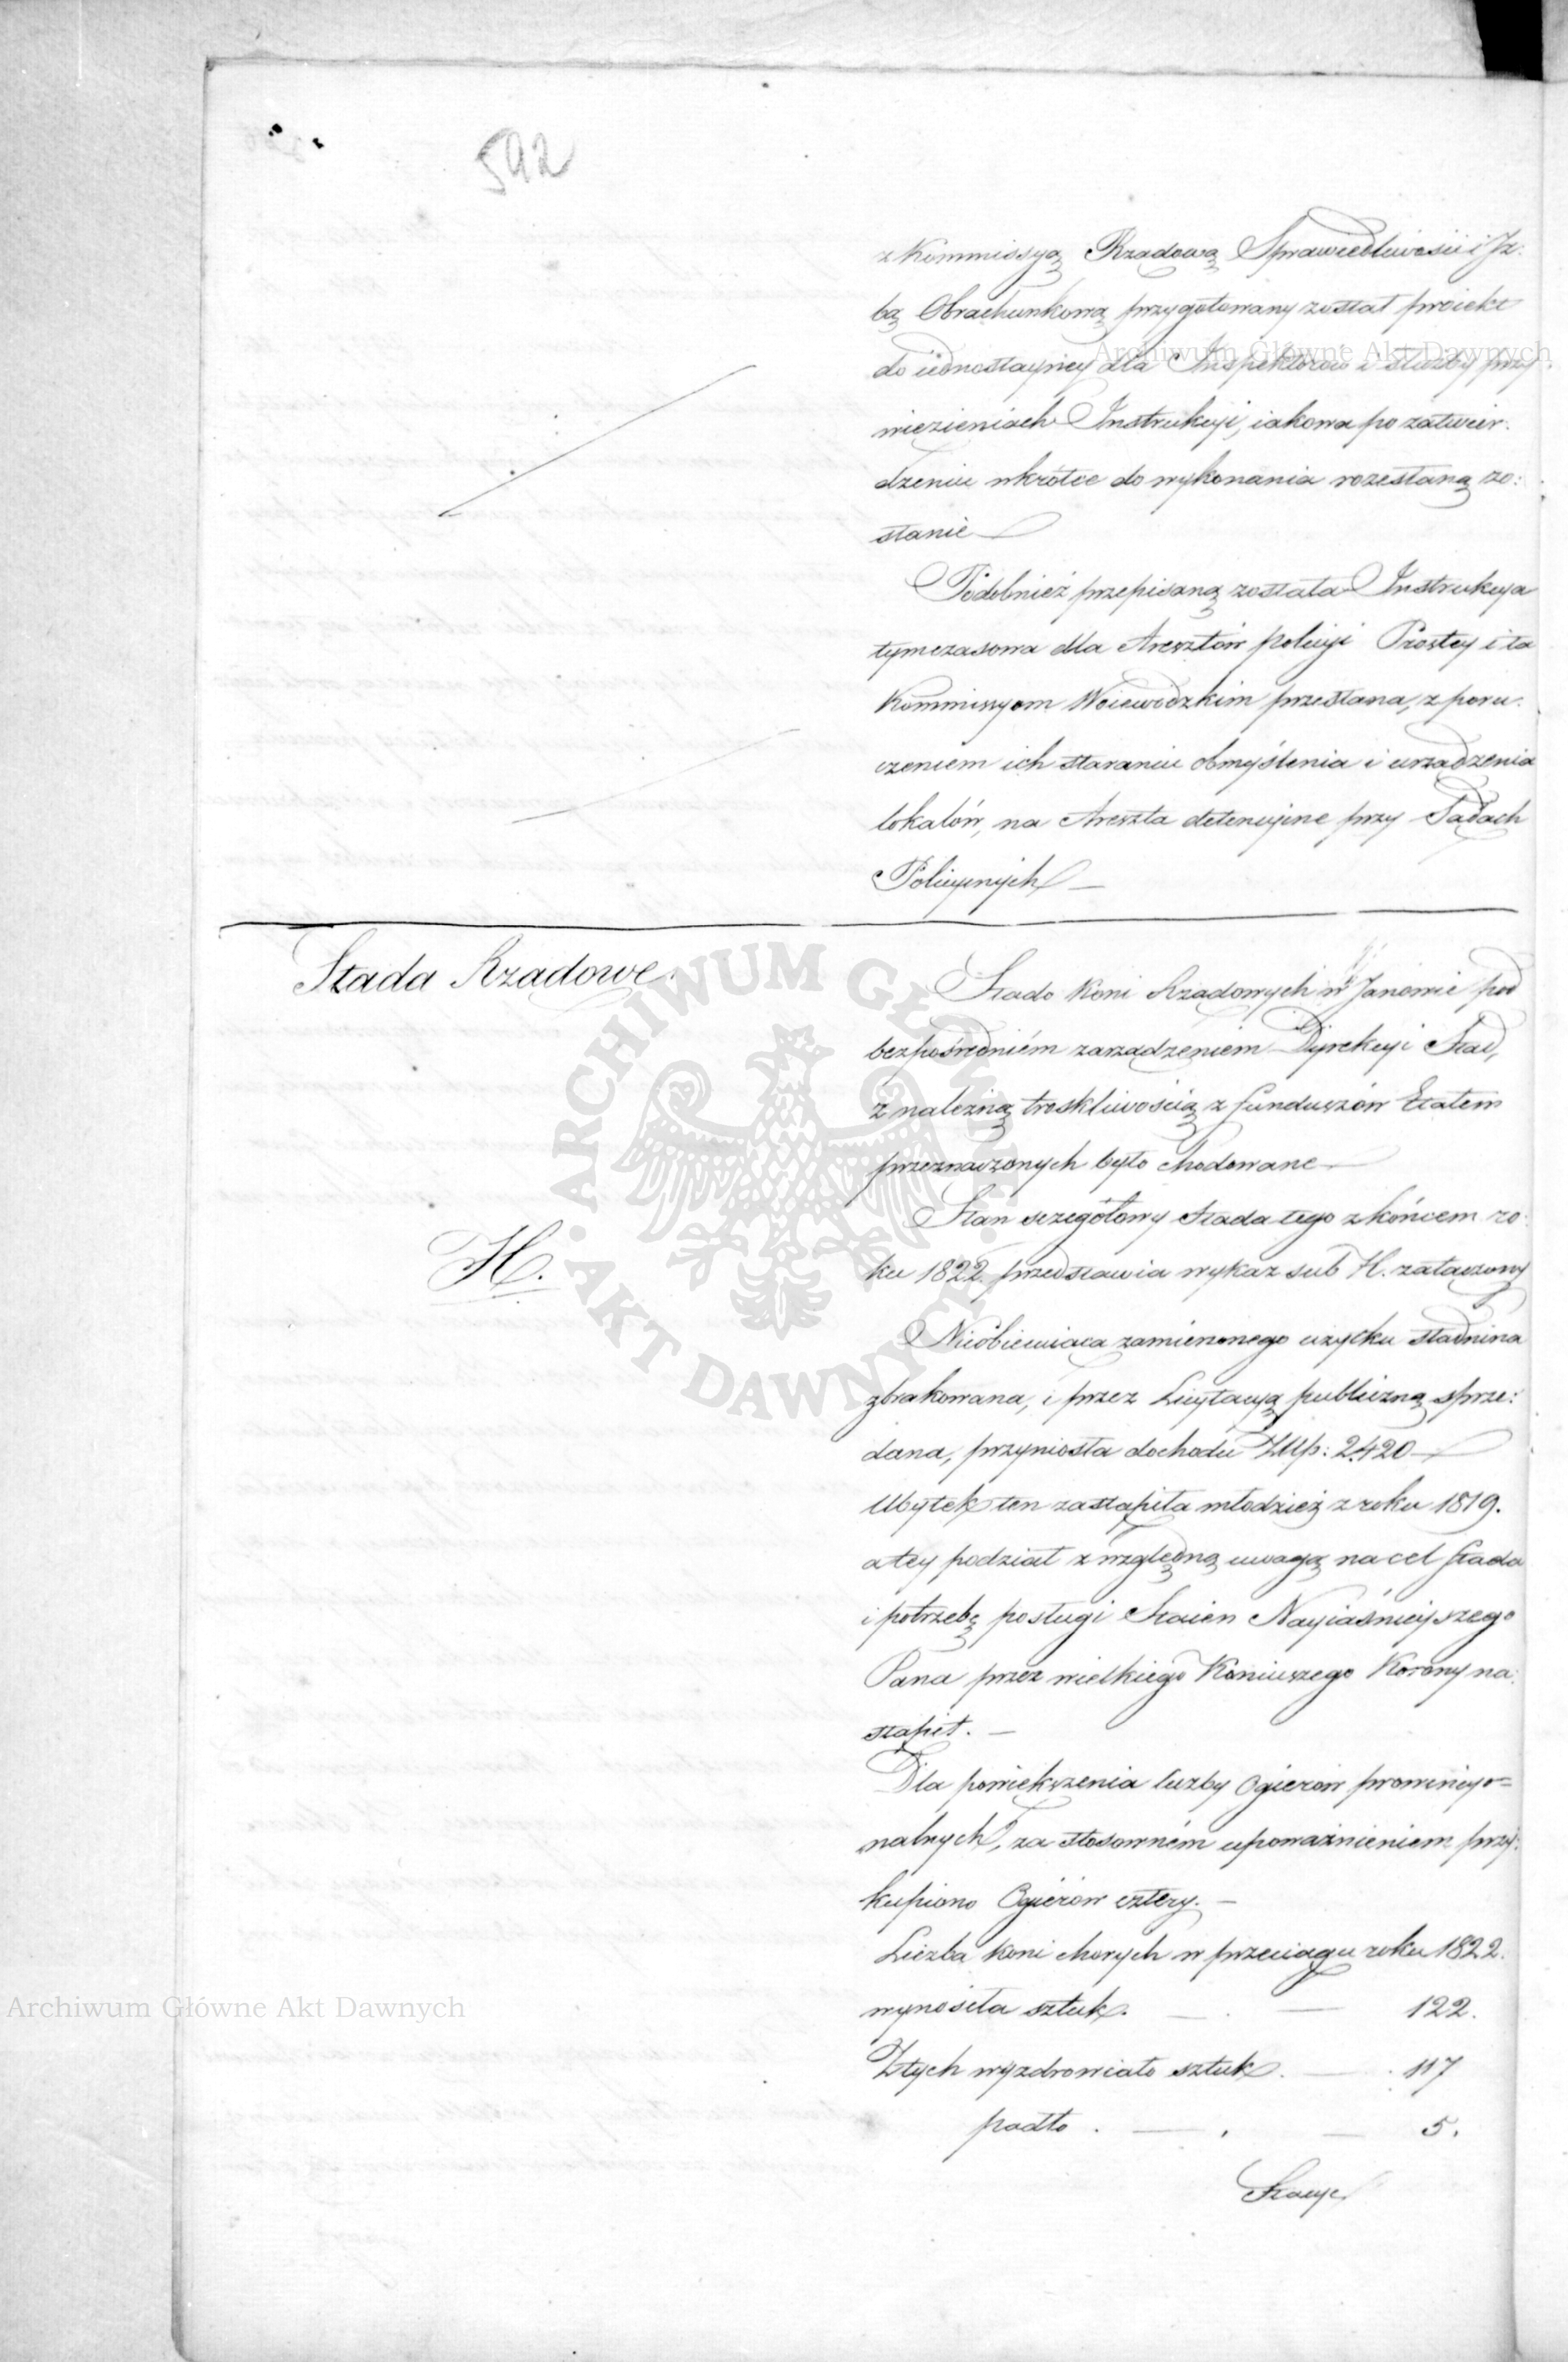 592
z Kommissyą Rządową Sprawiedliwości i Iz:
bą Obrachunkową przygotowany został proiekt
do iednostayney dla Inspektorów i służby przy
więzieniach Instrukcyi, iakowa po zatwier:
dzeniu wkrótce do wykonania rozesłaną zo:
stanie
Podobnież przepisaną została Instrukcya
tymczasowa dla Aresztów policyi Prostey i ta
Kommissyom Woiewódzkim przesłana, z poru:
czeniem ich staraniu obmyślenia i urządzenia
lokalów, na Areszta detencyine przy Sądach
Policyinych
Stada Rządowe.
Stado Koni Rządowych w Janowie pod
bezpośredniém zarządzeniem Dyrekcyi Stad,
z należną troskliwością z funduszów Etatem
przeznaczonych było chodowane
H.
Stan szczegółowy Stada tego z końcem ro:
ku 1822. przedstawia wykaz sub H. załączony
Nieobiecuiąca zamierzonego użytku stadnina
zbrakowana, i przez Licytacyą publiczną sprze:
dana, przyniosła dochodu Złłp: 2420
Ubytek ten zastąpiła młodzież z roku 1819.
a tey podział z względną uwagą na cel Stada
i potrzebę posługi Staien Nayiaśnieyszego
Pana przez wielkiego Koniuszego Korony na:
stąpił.
Dla powiększenia liczby Ogierów prowincyo=
nalnych, za stosowném upoważnieniem przy:
kupiono Ogierów cztery.
Liczba koni chorych w przeciągu roku 1822.
wynosiła sztuk. 122.
Z tych wyzdrowiało sztuk. 117
padło . 5.
Stacye
Archiwum Główne Akt Dawnych
Archiwum Główne Akt Dawnych
ARCHIWUM GŁÓWNE AKT DAWNYCH